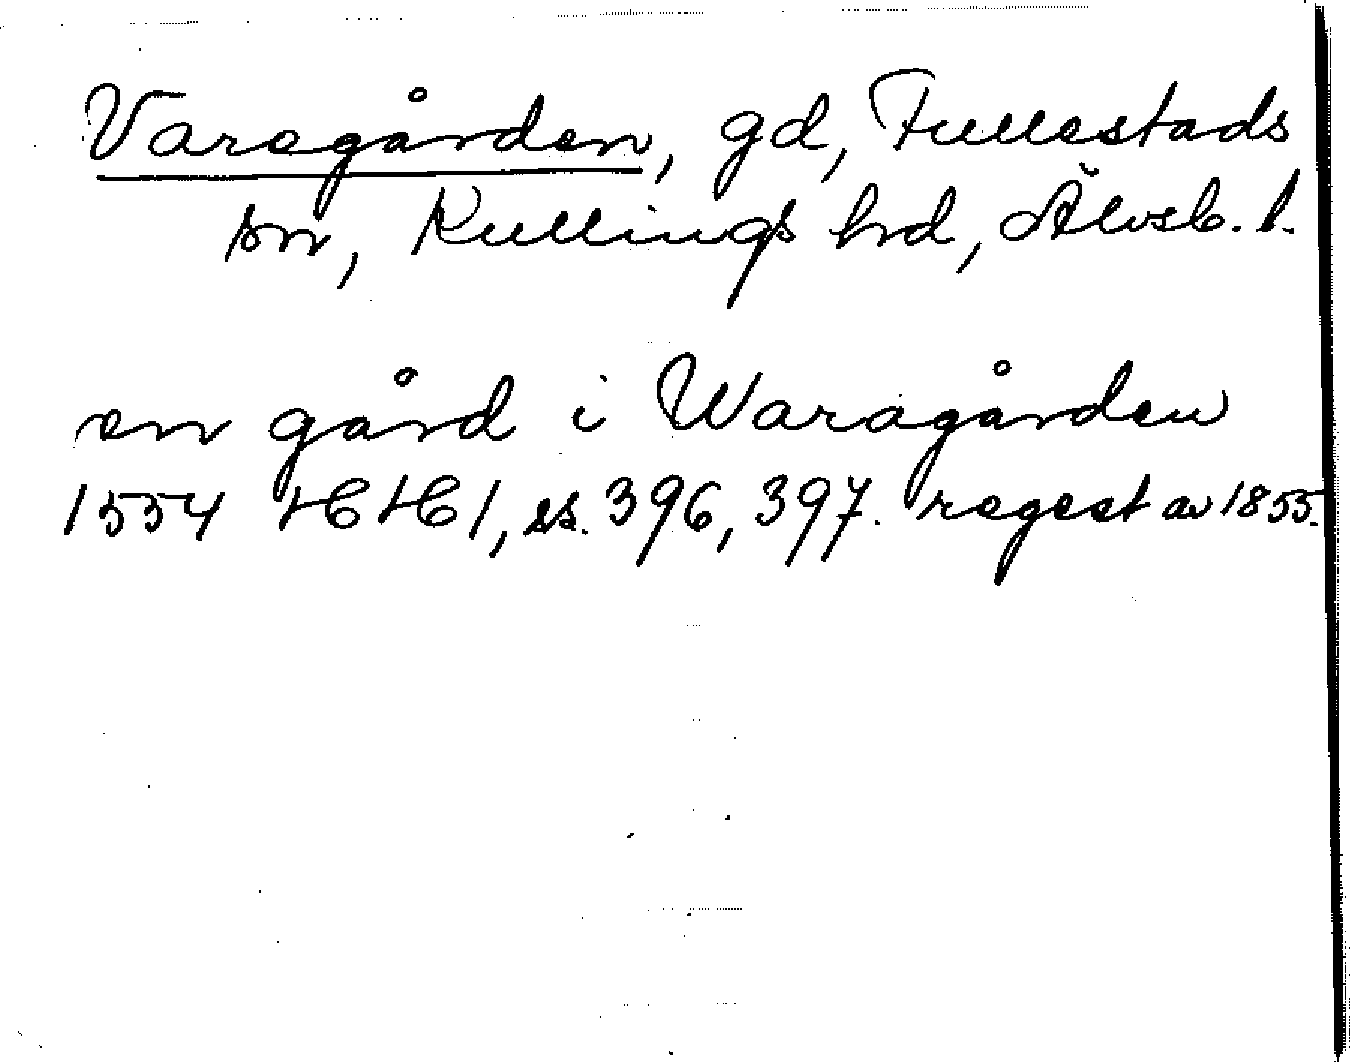 Varegården, gd, Fullestads
sn, Kullings hd, Älvsb. l.
en gård i Waragården
1554 HH1, ss. 396, 397. regest av 1855.